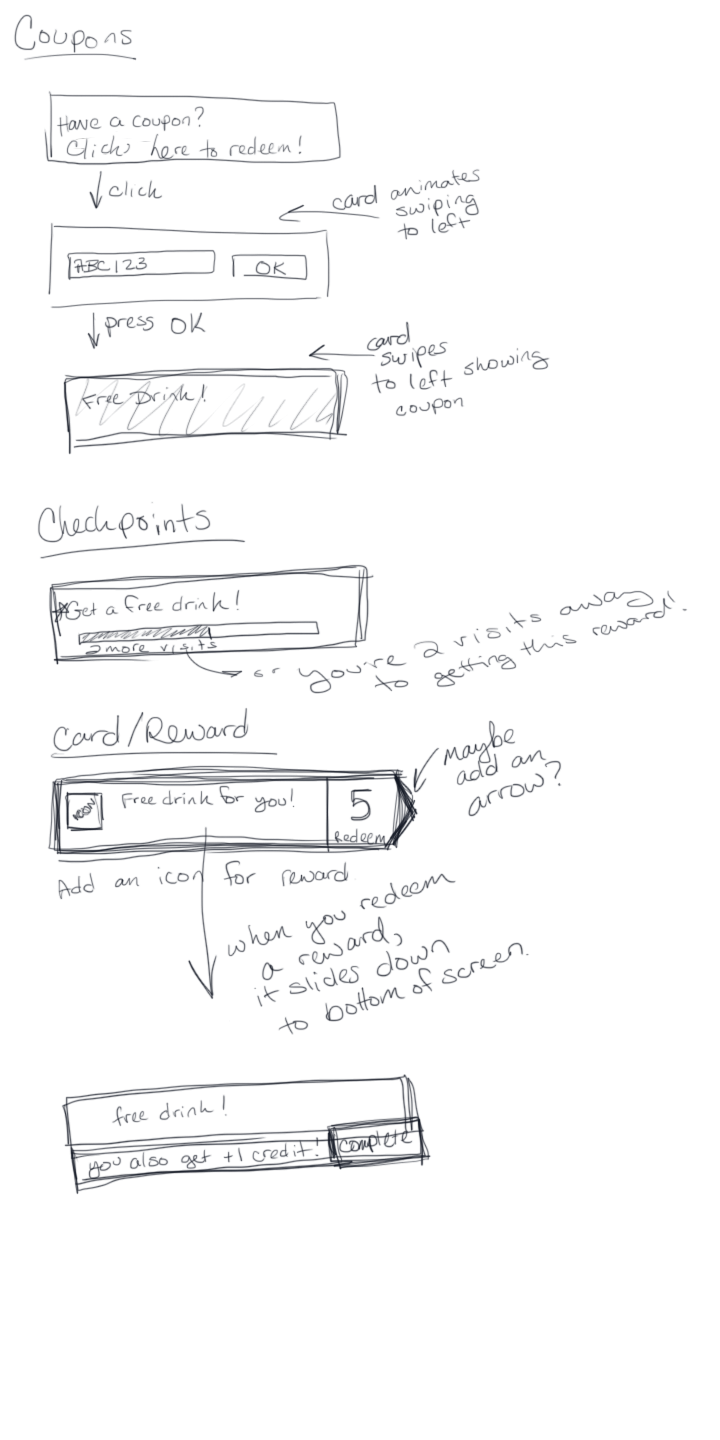 Coupons
Have a coupon?
Click here to redeem!
click
card animates
swiping
to left
ABC123
OK
press OK
card
swipes
to left showing
coupon
Free Drink!
Checkpoints
Get a free drink!
2 more visits
or you're 2 visits away
to getting this reward!
Card/Reward
Maybe
add an
arrow?
ICON
Free drink for you!
5
Redeem
Add an icon for reward
when you redeem
a reward,
it slides down
to bottom of screen.
free drink!
you also get +1 credit!
complete